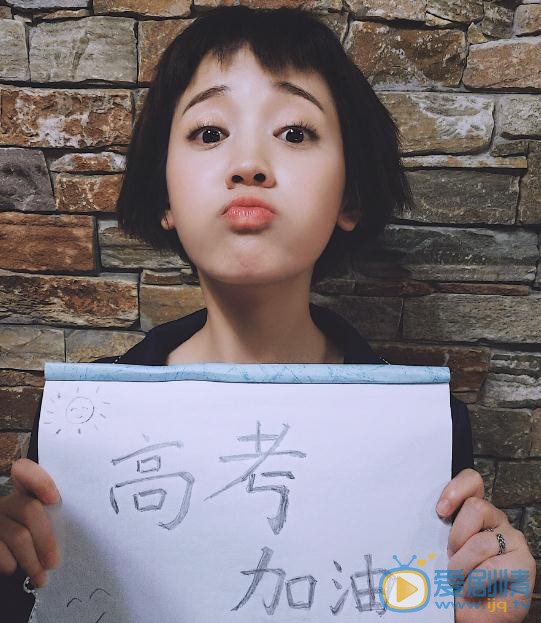 高考
加油
爱剧情
www.ijq.tv